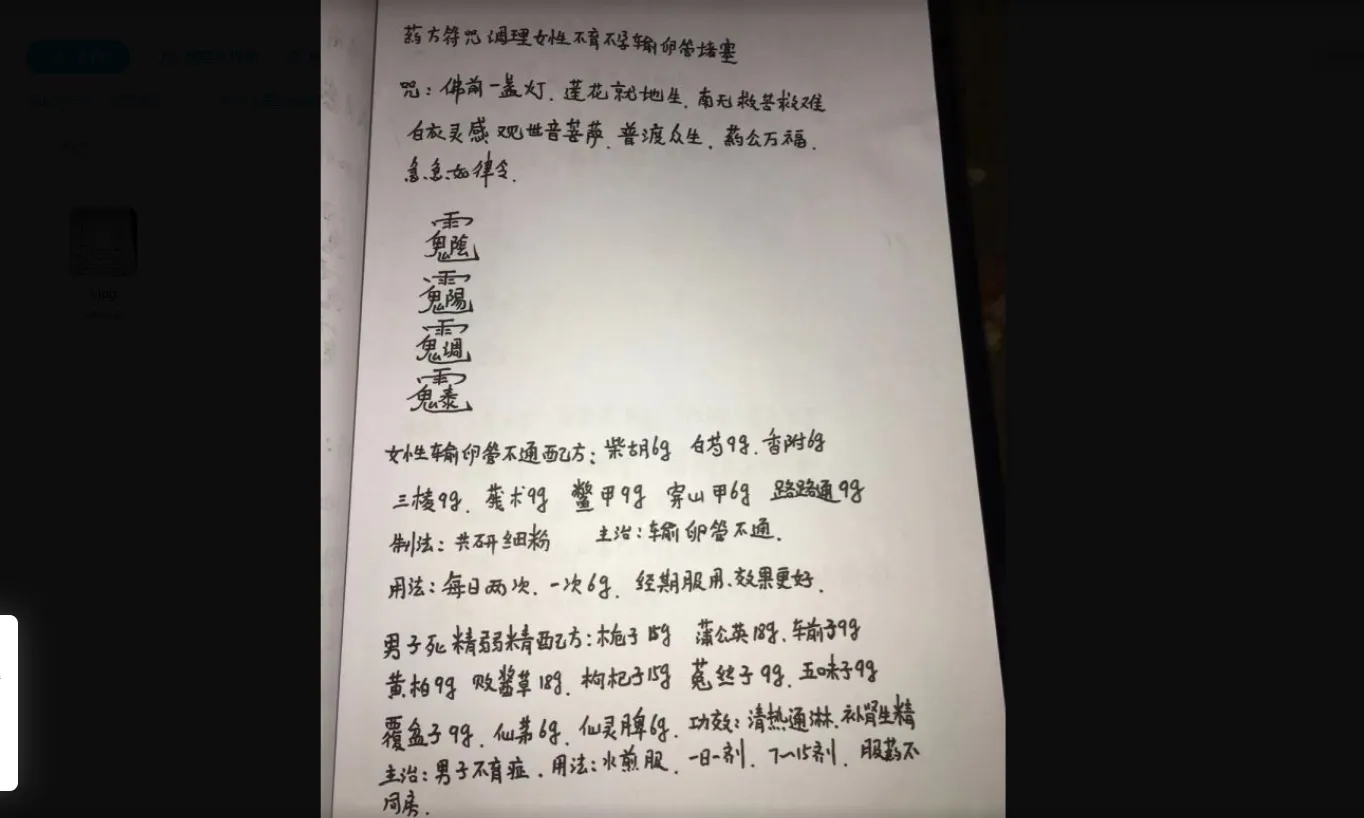 药方符咒调理女性不育不孕输卵管堵塞
咒：佛前一盏灯．莲花就地生．南无救苦救难
白衣灵感观世音菩萨．普渡众生．药么万福．
急急如律令．
女性输卵管不通配方：柴胡6g 白芍9g．香附6g
三棱9g．莪术9g 鳖甲9g 穿山甲6g 路路通9g
制法：共研细粉 主治：输卵管不通．
用法：每日两次．一次6g．经期服用、效果更好．
男子死精弱精配方：栀子15g 蒲公英18g．车前子9g
黄柏9g 败酱草18g．枸杞子15g 菟丝子9g．五味子9g
覆盆子9g．仙茅6g．仙灵脾6g．功效：清热通淋．补肾生精
主治：男子不育症．用法：水煎服．一日一剂．7～15剂．服药不
同房．